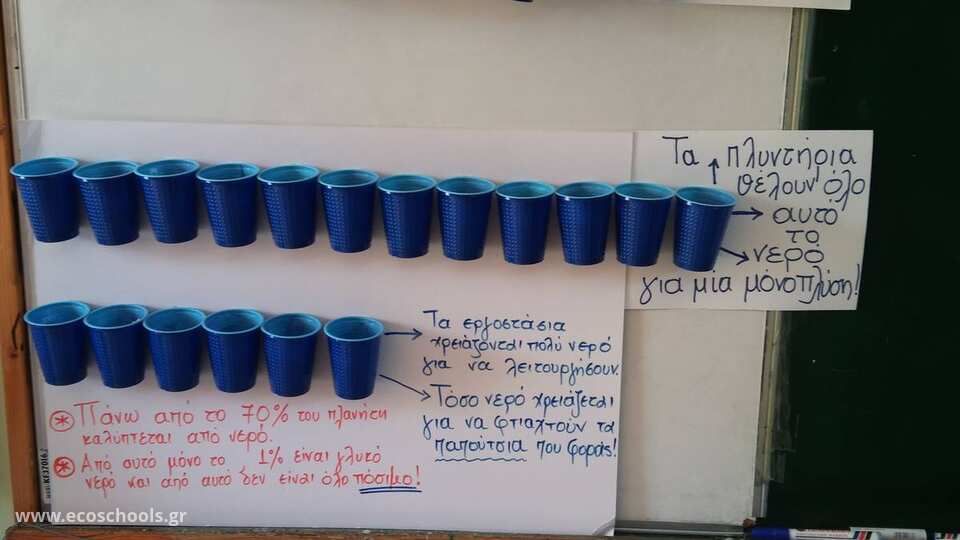 Τα πλυντήρια
θέλουν όλο
αυτό
το
νερό
για μία μόνο πλύση!
Τα εργοστάσια
χρειάζονται πολύ νερό
για να λειτουργήσουν.
Τόσο νερό χρειάζεται
για να φτιαχτούν τα
παπούτσια που φοράς!
Πάνω από το 70% του πλανήτη
καλύπτεται από νερό.
Από αυτό μόνο το 1% είναι γλυκό
νερό και από αυτό δεν είναι όλο πόσιμο!
www.ecoschools.gr